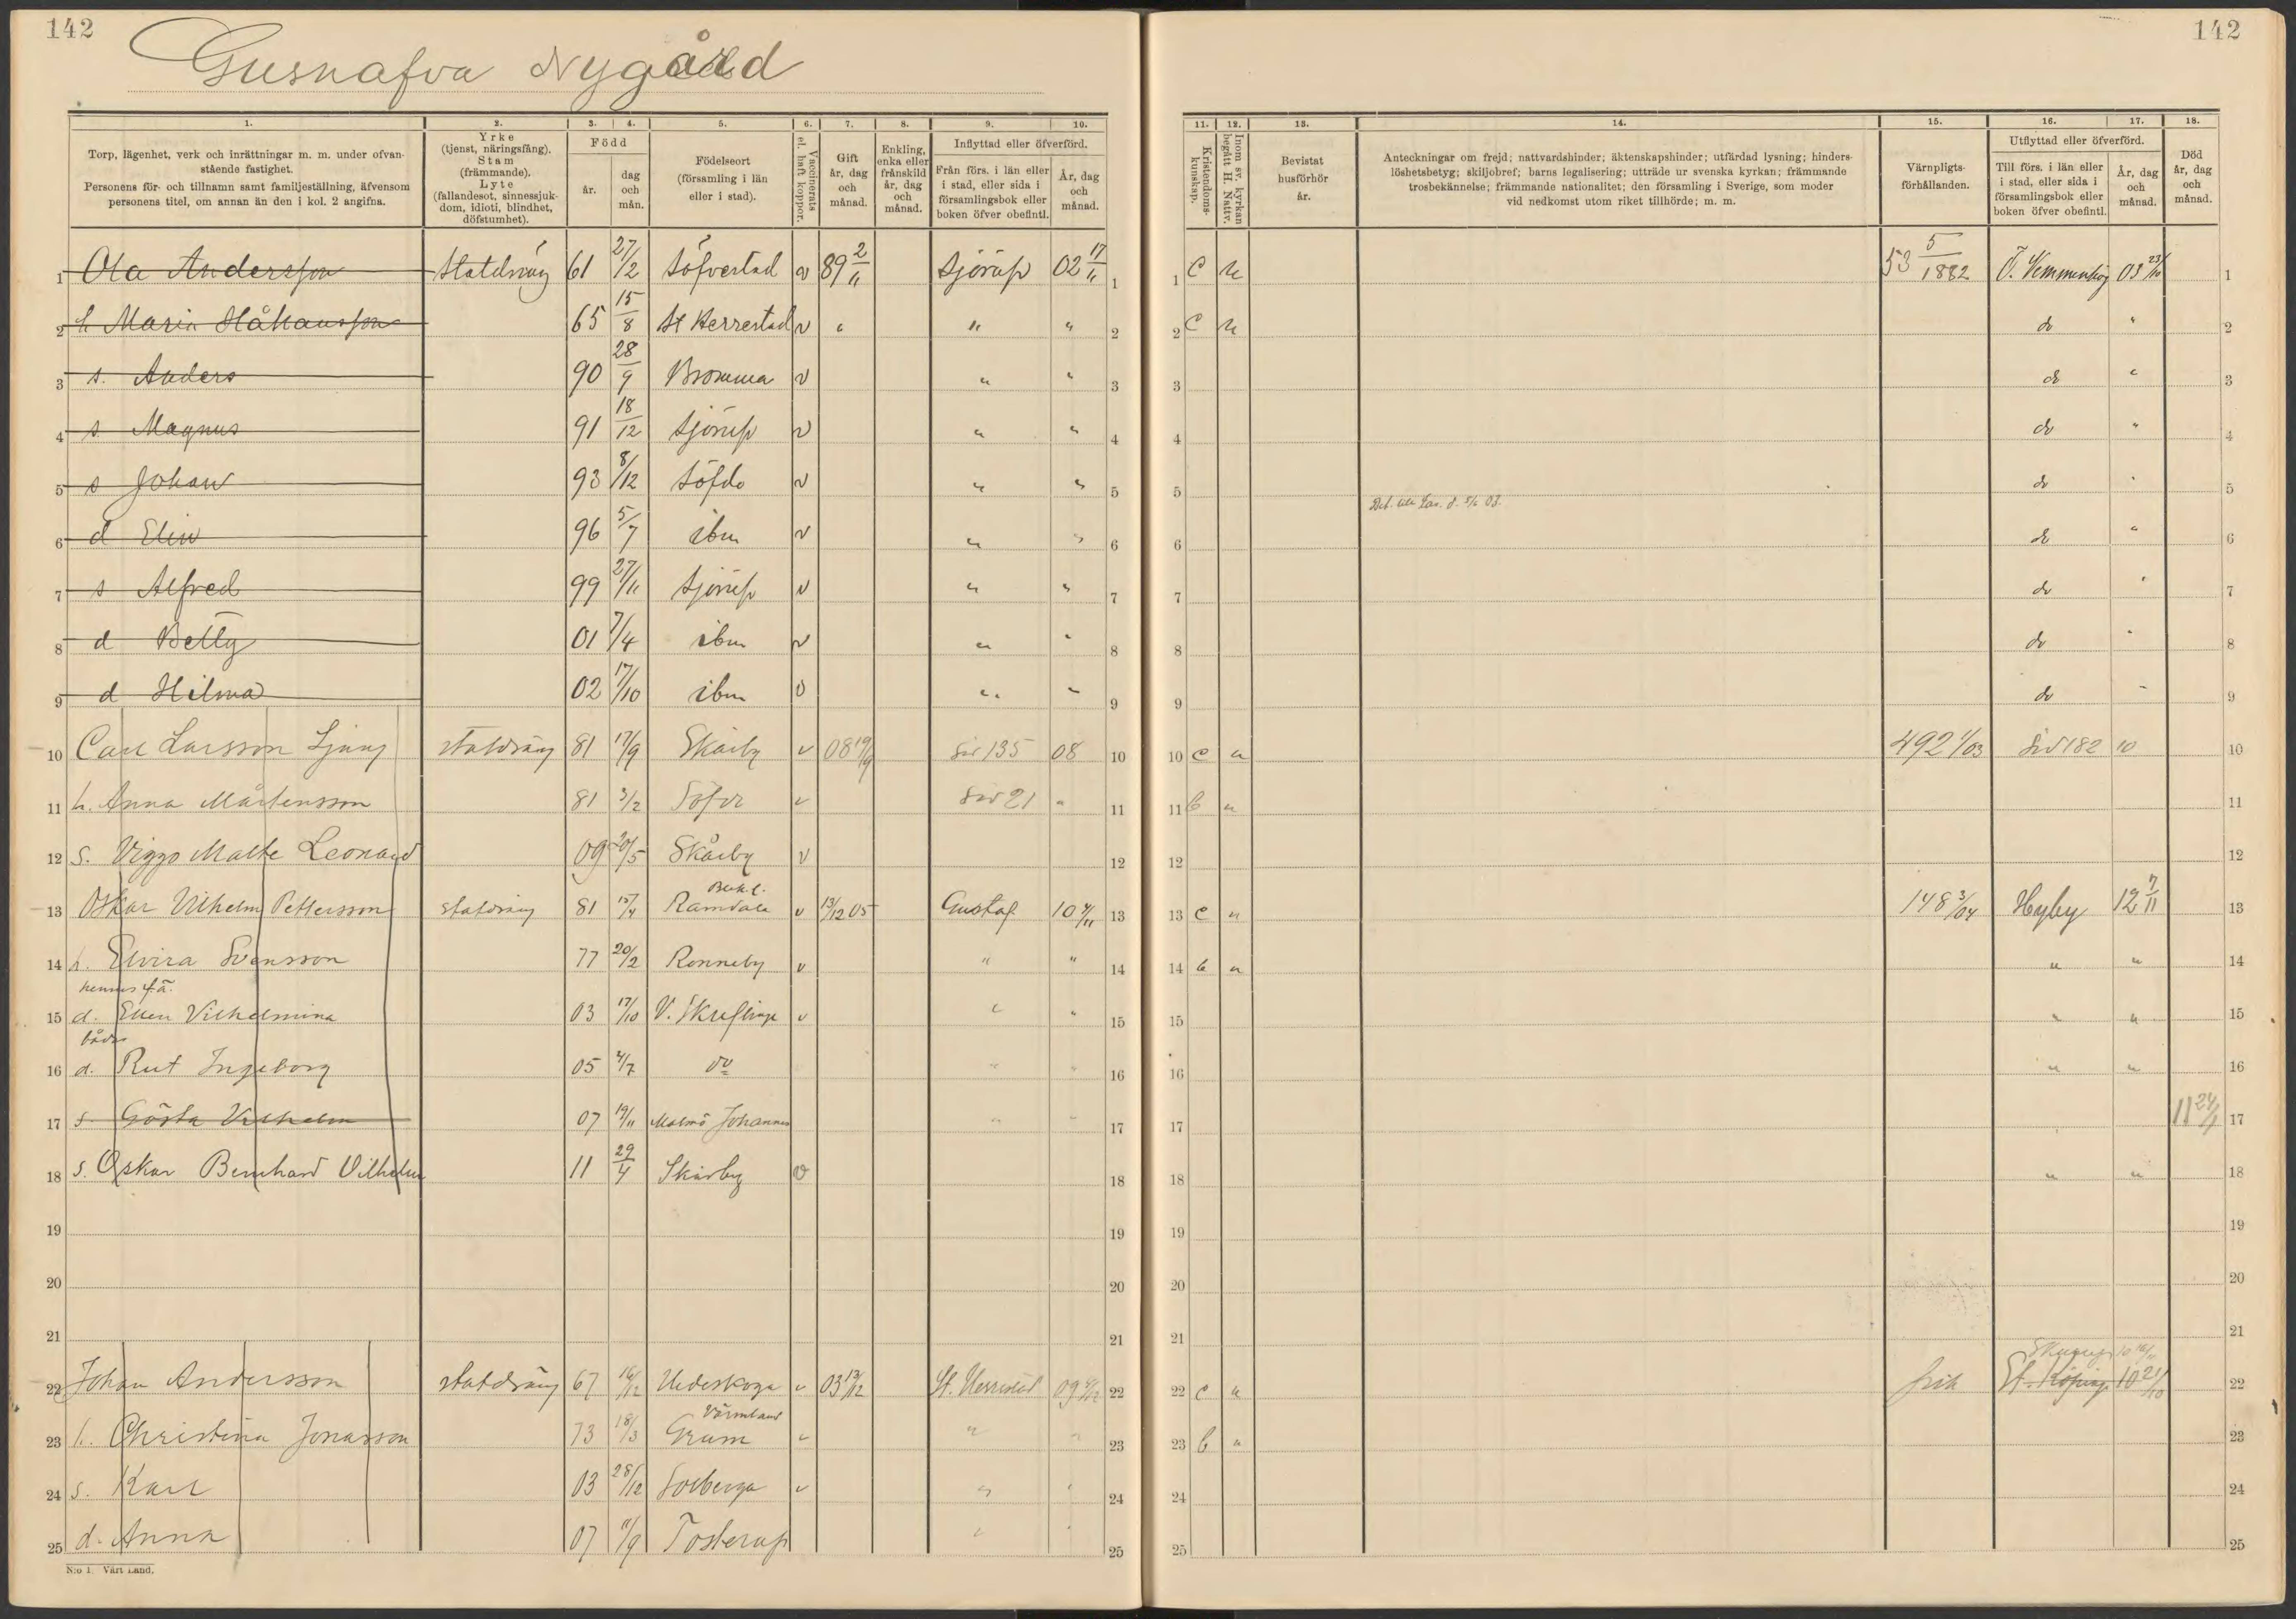 142
142
Gusnafva Nygård
1. 2. 3. 4. 5. 6. 7. 8. 9. 10.
Torp, lägenhet, verk och inrättningar m. m. under ofvanstående fastighet.
Personens för- och tillnamn samt familjeställning, äfvensom personens titel, om annan än den i kol. 2 angifna.
Yrke (tjenst, näringsfång). Stam (främmande). Lyte (fallandesot, sinnessjukdom, idioti, blindhet, döfstumhet).
Född
år. dag och mån.
Födelseort (församling i län eller i stad).
Vaccinerats el. haft koppor.
Gift år, dag och månad.
Enkling, enka eller frånskild år, dag och månad.
Inflyttad eller öfverförd.
Från förs. i län eller i stad, eller sida i församlingsbok eller boken öfver obefintl.
År, dag och månad.
11. 12. 13. 14. 15. 16. 17. 18.
Kristendomskunskap.
Inom sv. kyrkan begått H. Nattv.
Bevistat husförhör år.
Anteckningar om frejd; nattvardshinder; äktenskapshinder; utfärdad lysning; hinderslöshetsbetyg; skiljobref; barns legalisering; utträde ur svenska kyrkan; främmande trosbekännelse; främmande nationalitet; den församling i Sverige, som moder vid nedkomst utom riket tillhörde; m. m.
Värnpligtsförhållanden.
Utflyttad eller öfverförd.
Till förs. i län eller i stad, eller sida i församlingsbok eller boken öfver obefintl.
År, dag och månad.
Död år, dag och månad.
1 Ola Andersson Statdräng 61 27/2 Söfvestad v 89 2/11 Sjörup 02 17/11 1 1 C n 53 5/1882 Ö. Vemmenhög 03 23/10 1
2 h Maria Håkansson 65 15/8 St Herrestad v " " " 2 2 C n do " 2
3 s. Anders 90 28/9 Bromma v " " 3 3 do " 3
4 s Magnus 91 18/12 Sjörup v " " 4 4 do " 4
5 s Johan 93 8/12 Söfde v " " 5 5 do " 5
6 d Elin 96 5/7 ibm v " " 6 6 do " 6
7 s Alfred 99 27/11 Sjörup v " " 7 7 do " 7
8 d Betty 01 7/4 ibm v " " 8 8 do " 8
9 d Hilma 02 17/10 ibm v " " 9 9 do " 9
10 Carl Larsson Ljung statdräng 81 17/9 Skårby v 08 19/9 Sid 135 08 10 10 c n 492 1/03 Sid 182 10 10
11 h. Anna Mårtensson 81 3/2 Söfde v Sid 21 " 11 11 b n 11
12 s. Viggo Malte Leonard 09 20/5 Skårby v 12 12 12
13 Oskar Vilhelm Pettersson statdräng 81 15/4 Blek. l. Ramdala v 13/12 05 Gustaf 10 4/11 13 13 c n 148 3/04 Hyby 12 7/11 13
14 h. Elvira Svensson 77 20/2 Ronneby v " " 14 14 b n " " 14
hennes f. ä.
15 d. Ellen Vilhelmina 03 17/10 V. Skreflinge v " " 15 15 " " 15
bådas
16 d. Rut Ingeborg 05 4/7 do " " 16 16 " " 16
17 s. Gösta Vilhelm 07 19/11 Malmö Johannes " " 17 17 11 24/1 17
18 s. Oskar Bernhard Vilhelm 11 29/4 Skårby v 18 18 " " 18
19 19 19 19
20 20 20 20
21 21 21 21
Skurup 10
22 Johan Andersson statdräng 67 16/12 Uddeskoga v 03 13/12 St. Herrestad 09 4/12 22 22 c n frik St. Köpinge 10 21/10 22
23 h. Christina Jonasson 73 18/3 Värmland Grum v " " 23 23 b n 23
24 s. Karl 03 28/12 Solberga v " " 24 24 24
25 d. Anna 07 11/9 Tosterup " " 25 25 25
N:o 1. Vårt Land.